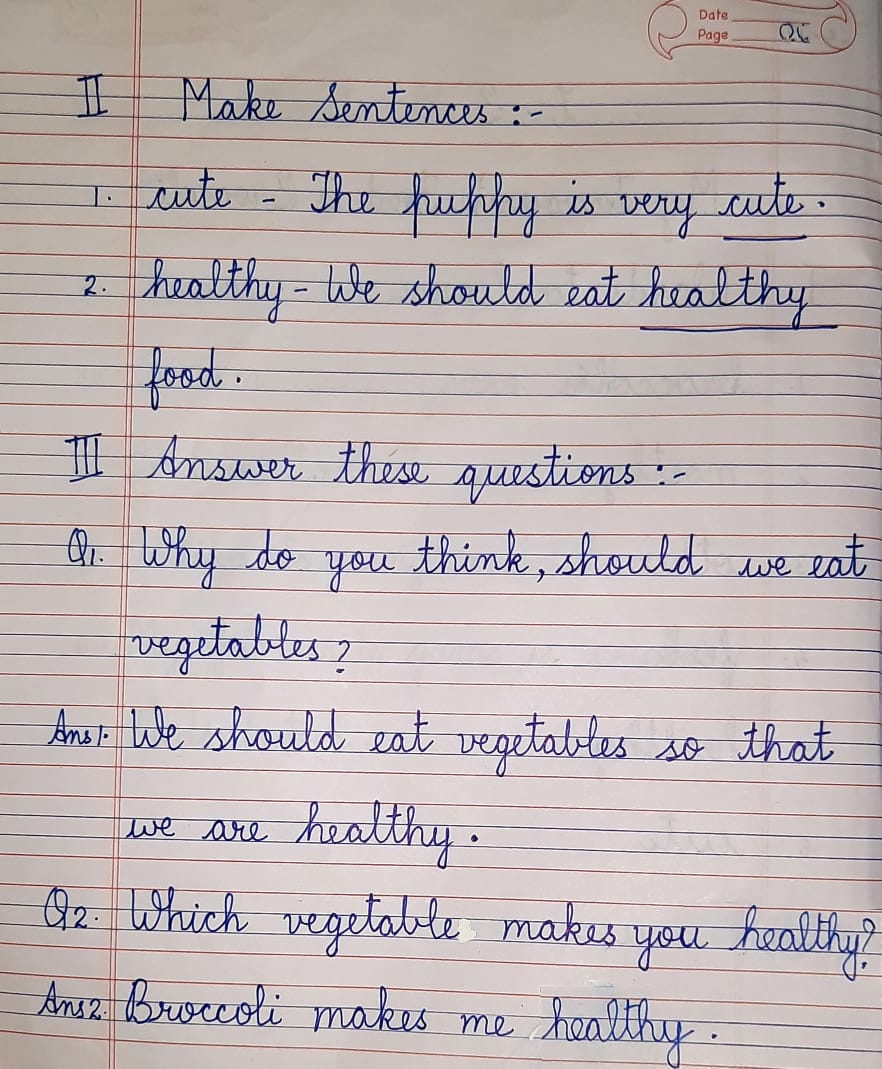 Date
Page
II Make Sentences :-
1. cute - The puppy is very cute.
2. healthy - We should eat healthy
food.
III Answer these questions :-
Q1. Why do you think, should we eat
vegetables?
Ans1. We should eat vegetables so that
we are healthy.
Q2. Which vegetable makes you healthy?
Ans2. Broccoli makes me healthy.